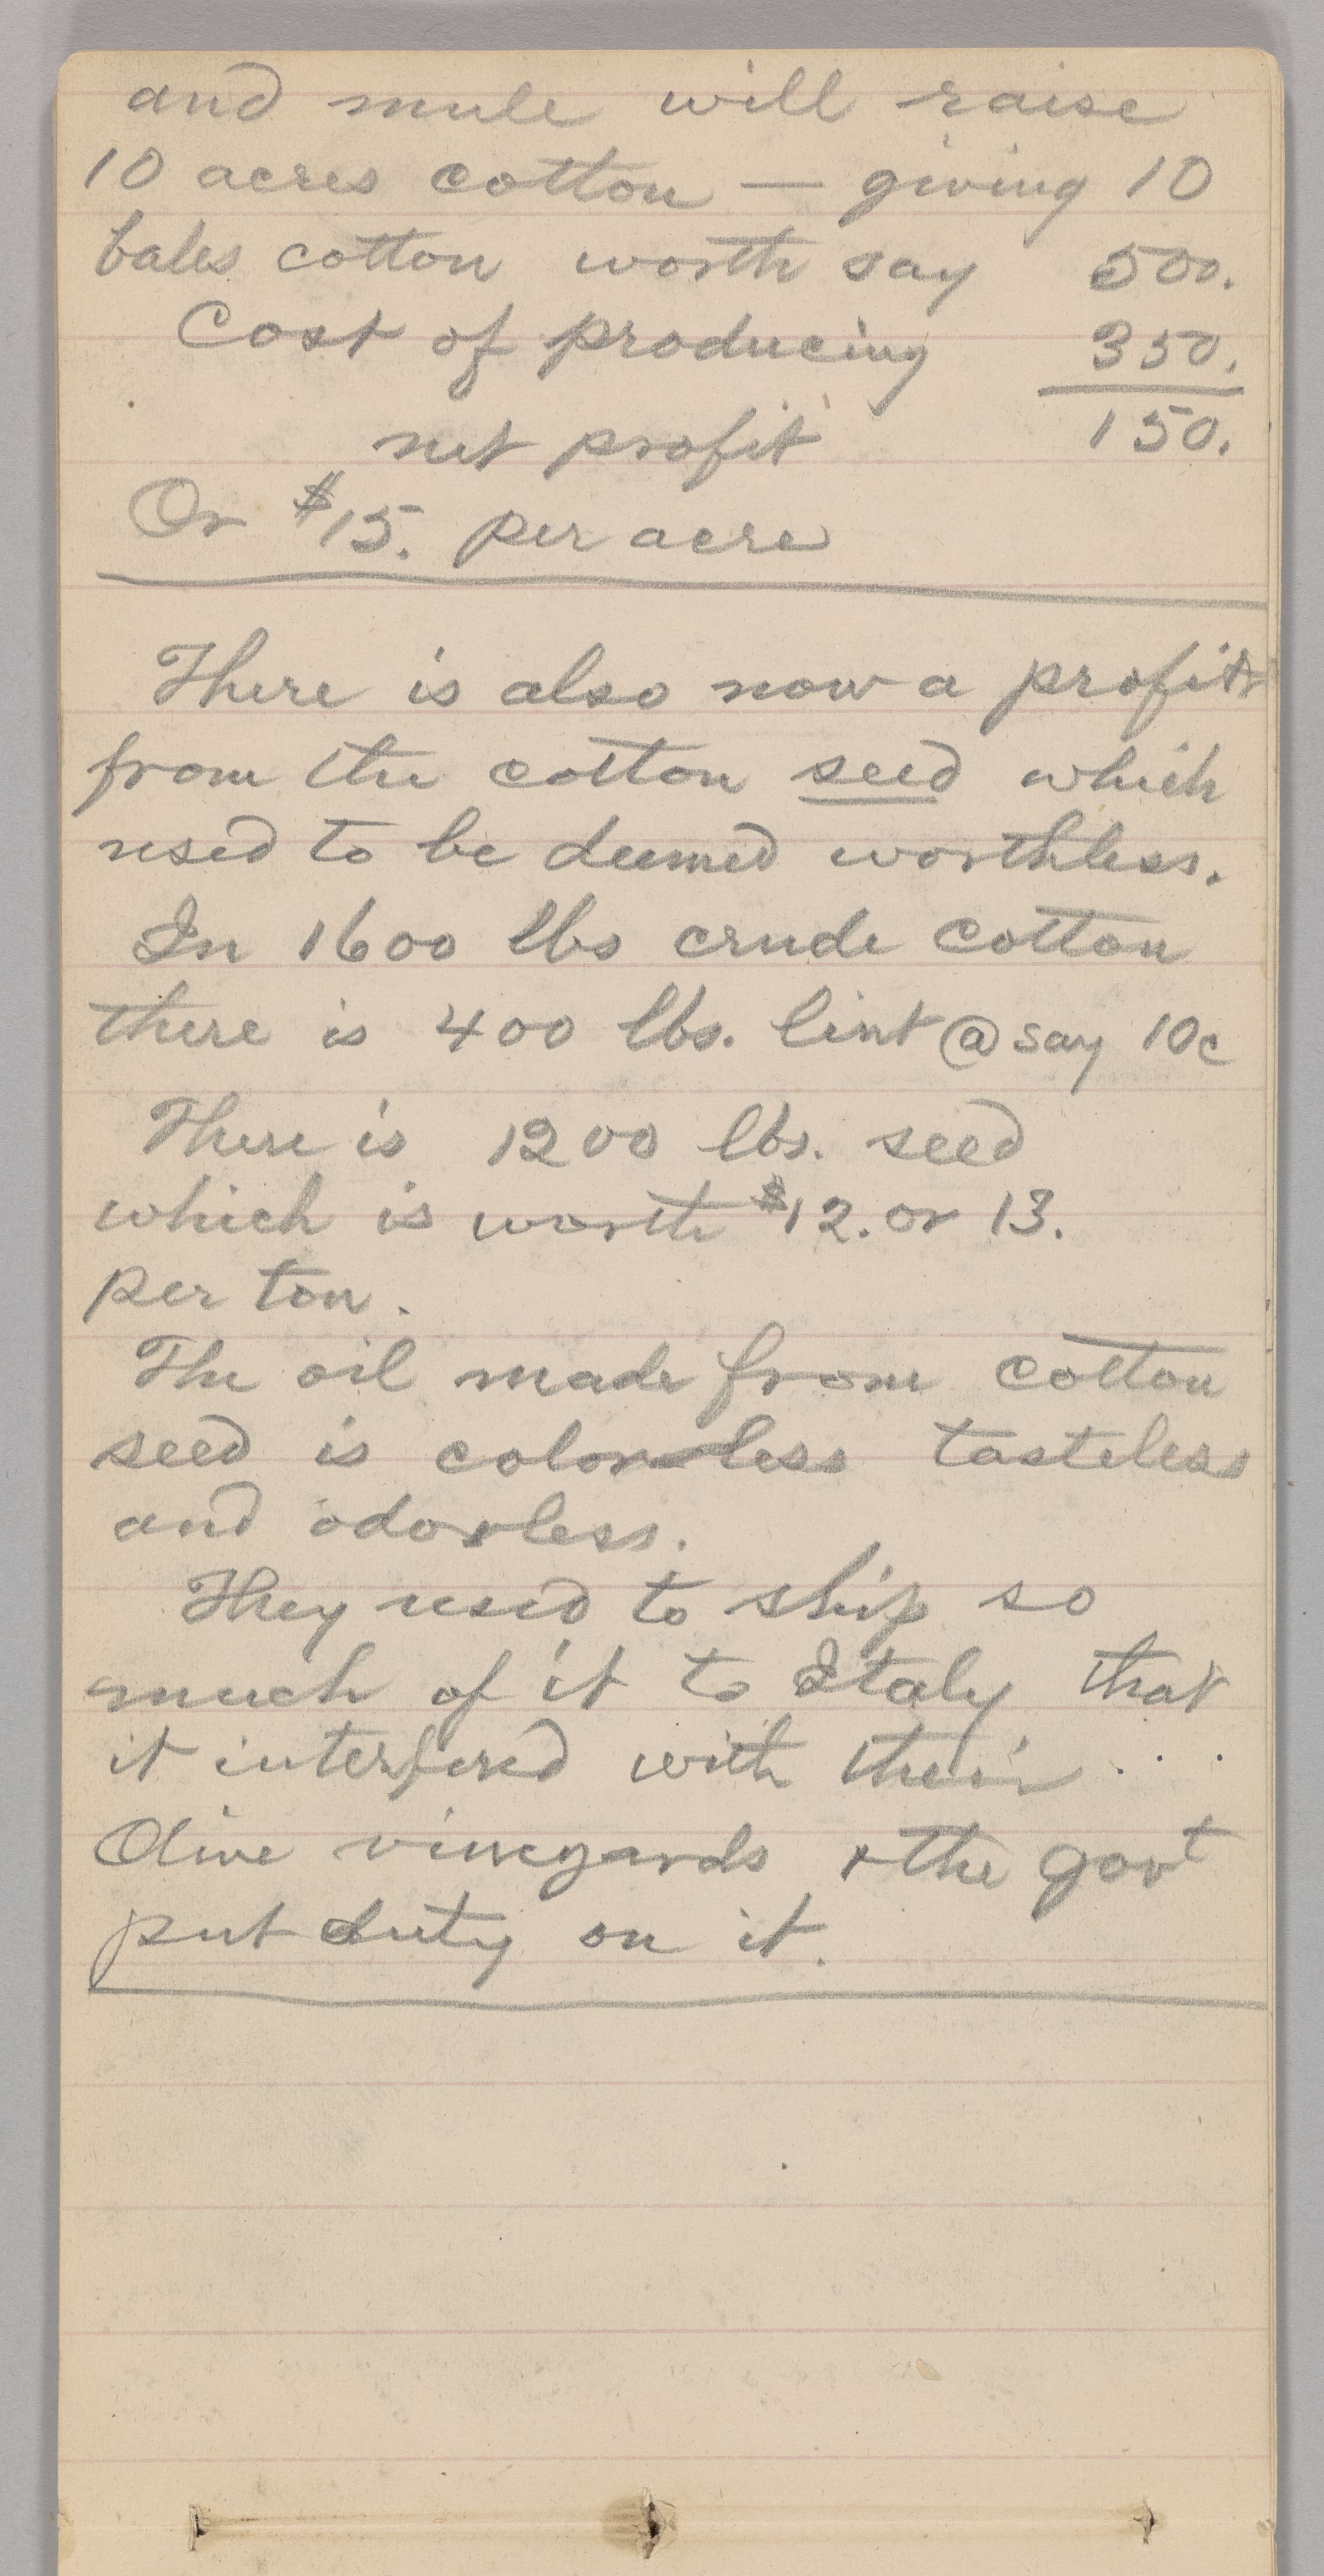 and mule will raise
10 acres cotton — giving 10
bales cotton worth say 500.
Cost of producing 350.
net profit 150.
Or $15. per acre
There is also now a profit
from the cotton seed which
used to be deemed worthless.
In 1600 lbs crude cotton
there is 400 lbs. lint @ say 10c
There is 1200 lbs. seed
which is worth $12. or 13.
per ton.
The oil made from cotton
seed is colorless tasteless
and odorless.
They used to ship so
much of it to Italy that
it interfered with their
Olive vineyards & the govt
put duty on it.